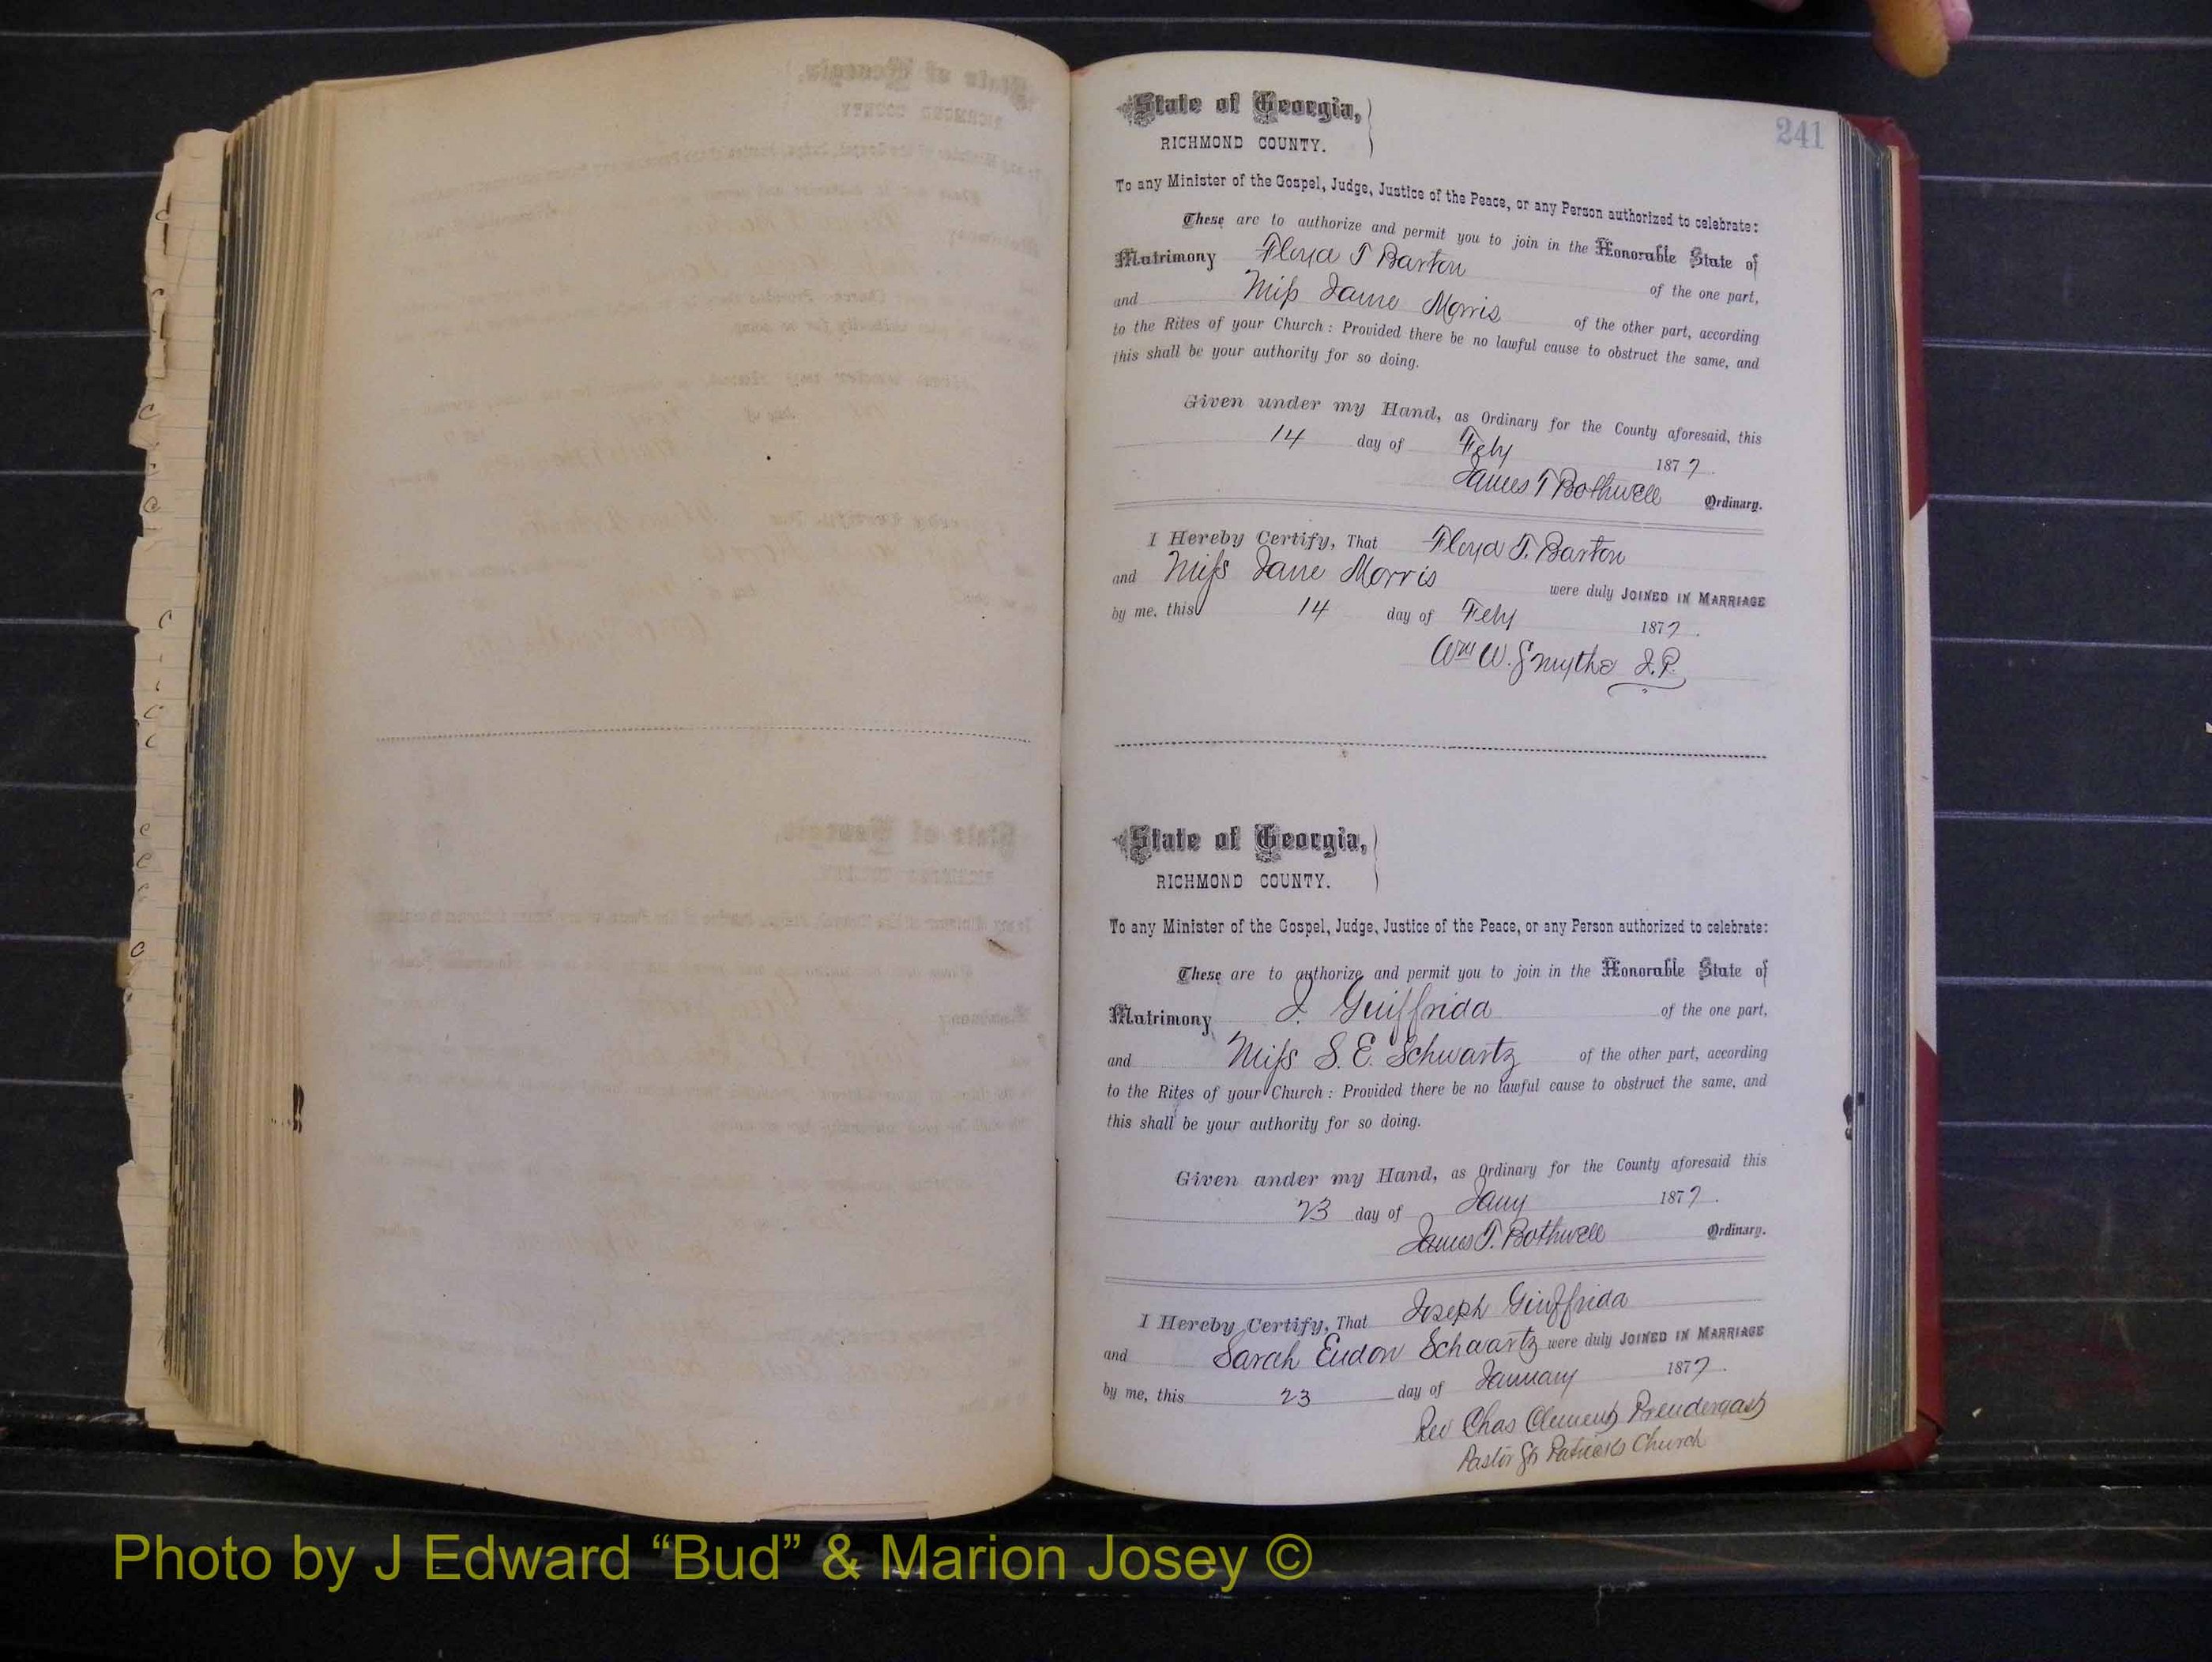 241
State of Georgia,
RICHMOND COUNTY.
To any Minister of the Gospel, Judge, Justice of the Peace, or any Person authorized to celebrate:
These are to authorize and permit you to join in the Honorable State of
Matrimony Floyd T Barton of the one part,
and Miss Jane Morris of the other part, according
to the Rites of your Church: Provided there be no lawful cause to obstruct the same, and
this shall be your authority for so doing.
Given under my Hand, as Ordinary for the County aforesaid, this
14 day of Feby 1877.
James T Bothwell Ordinary.
I Hereby Certify, That Floyd T. Barton
and Miss Jane Morris were duly JOINED IN MARRIAGE
by me, this 14 day of Feby 1877.
Wm W. Smythe J.P.
State of Georgia,
RICHMOND COUNTY.
To any Minister of the Gospel, Judge, Justice of the Peace, or any Person authorized to celebrate:
These are to authorize and permit you to join in the Honorable State of
Matrimony J. Guiffrida of the one part,
and Miss S. E. Schwartz of the other part, according
to the Rites of your Church: Provided there be no lawful cause to obstruct the same, and
this shall be your authority for so doing.
Given under my Hand, as Ordinary for the County aforesaid this
23 day of Jany 1877.
James T. Bothwell Ordinary.
I Hereby Certify, That Joseph Giuffrida
and Sarah Eudon Schwartz were duly JOINED IN MARRIAGE
by me, this 23 day of January 1877.
Rev Chas Clement Prendergast
Pastor St Patricks Church
Photo by J Edward “Bud” & Marion Josey ©